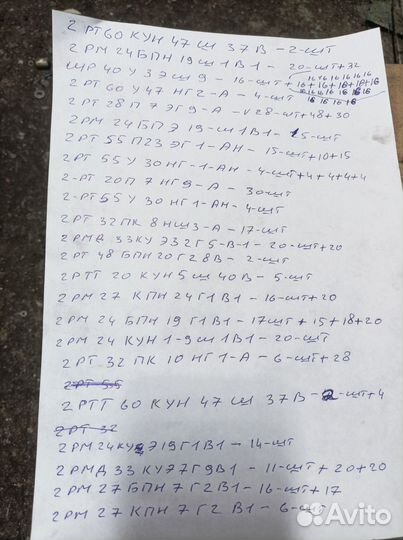 2 РТ 60 КУН 47 Ш 37 В - 2-ШТ
2 РМ 24 БПН 19 Ш 1 В 1 - 20-ШТ+32
ШР 40 У 3 ЭШ 9 - 16-ШТ+
16 16 16 16 16 16
16+16+16+16+16
16 16 16 16 16 16
16 16 16+16
2 РТ 60 У 47 НГ 2-А - 4-ШТ
2 РТ 28 П 7 ЭГ 9-А - 28-ШТ+48+30
2 РМ 24 БП Э 19-Ш 1 В 1 - 15-ШТ
2 РТ 55 П 23 ЭГ 1-АН - 15-ШТ+10+15
2 РТ 55 У 30 НГ-1-АН - 4-ШТ+4+4+4+4
2-РТ 20 П 7 НГ 9-А - 30-ШТ
2-РТ 55 У 30 НГ 1-АН - 4-ШТ
2 РТ 32 ПК 8 НШ 3-А - 17-ШТ
2 РМД 33 КУ Э 32 Г 5-В-1 - 20-ШТ+20
2 РТ 48 БПН 20 Г 28 В - 2-ШТ
2 РТТ 20 КУН 5 Ш 40 В - 5-ШТ
2 РМ 27 КПН 24 Г 1 В 1 - 16-ШТ+20
2 РМ 24 БПН 19 Г 1 В 1 - 17 ШТ + 15+18+20
2 РМ 24 КУН 1-9 Ш 1 В 1 - 20-ШТ
2 РТ 32 ПК 10 НГ 1-А - 6-ШТ+28
2 РТ 55
2 РТТ 60 КУН 47 Ш 37 В - 2-ШТ+4
2 РТ 32
2 РМ 24 КУ Э 19 Г 1 В 1 - 14-ШТ
2 РМД 33 КУ Э 7 Г 9 В 1 - 11-ШТ+20+20
2 РМ 27 БПН 7 Г 2 В 1 - 16-ШТ+17
2 РМ 27 КПН 7 Г 2 В 1 - 6-ШТ
Avito